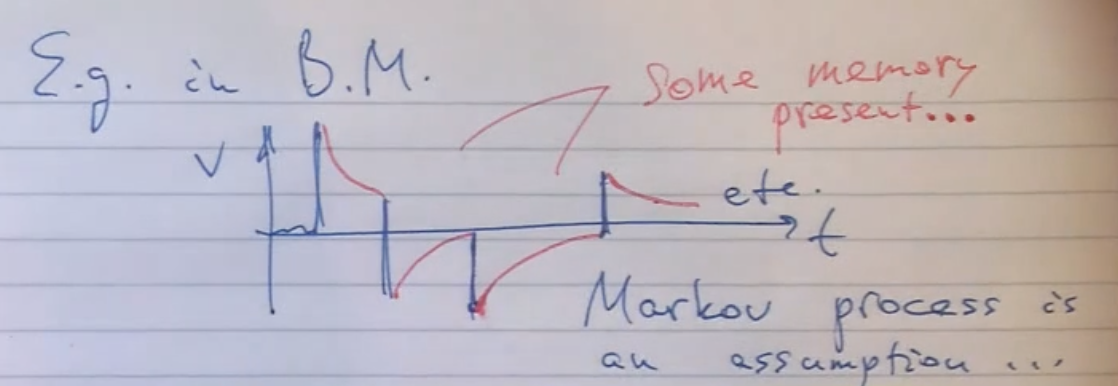 E.g. in B.M.
Some memory
present...
V
etc.
t
Markov process is
an assumption ...